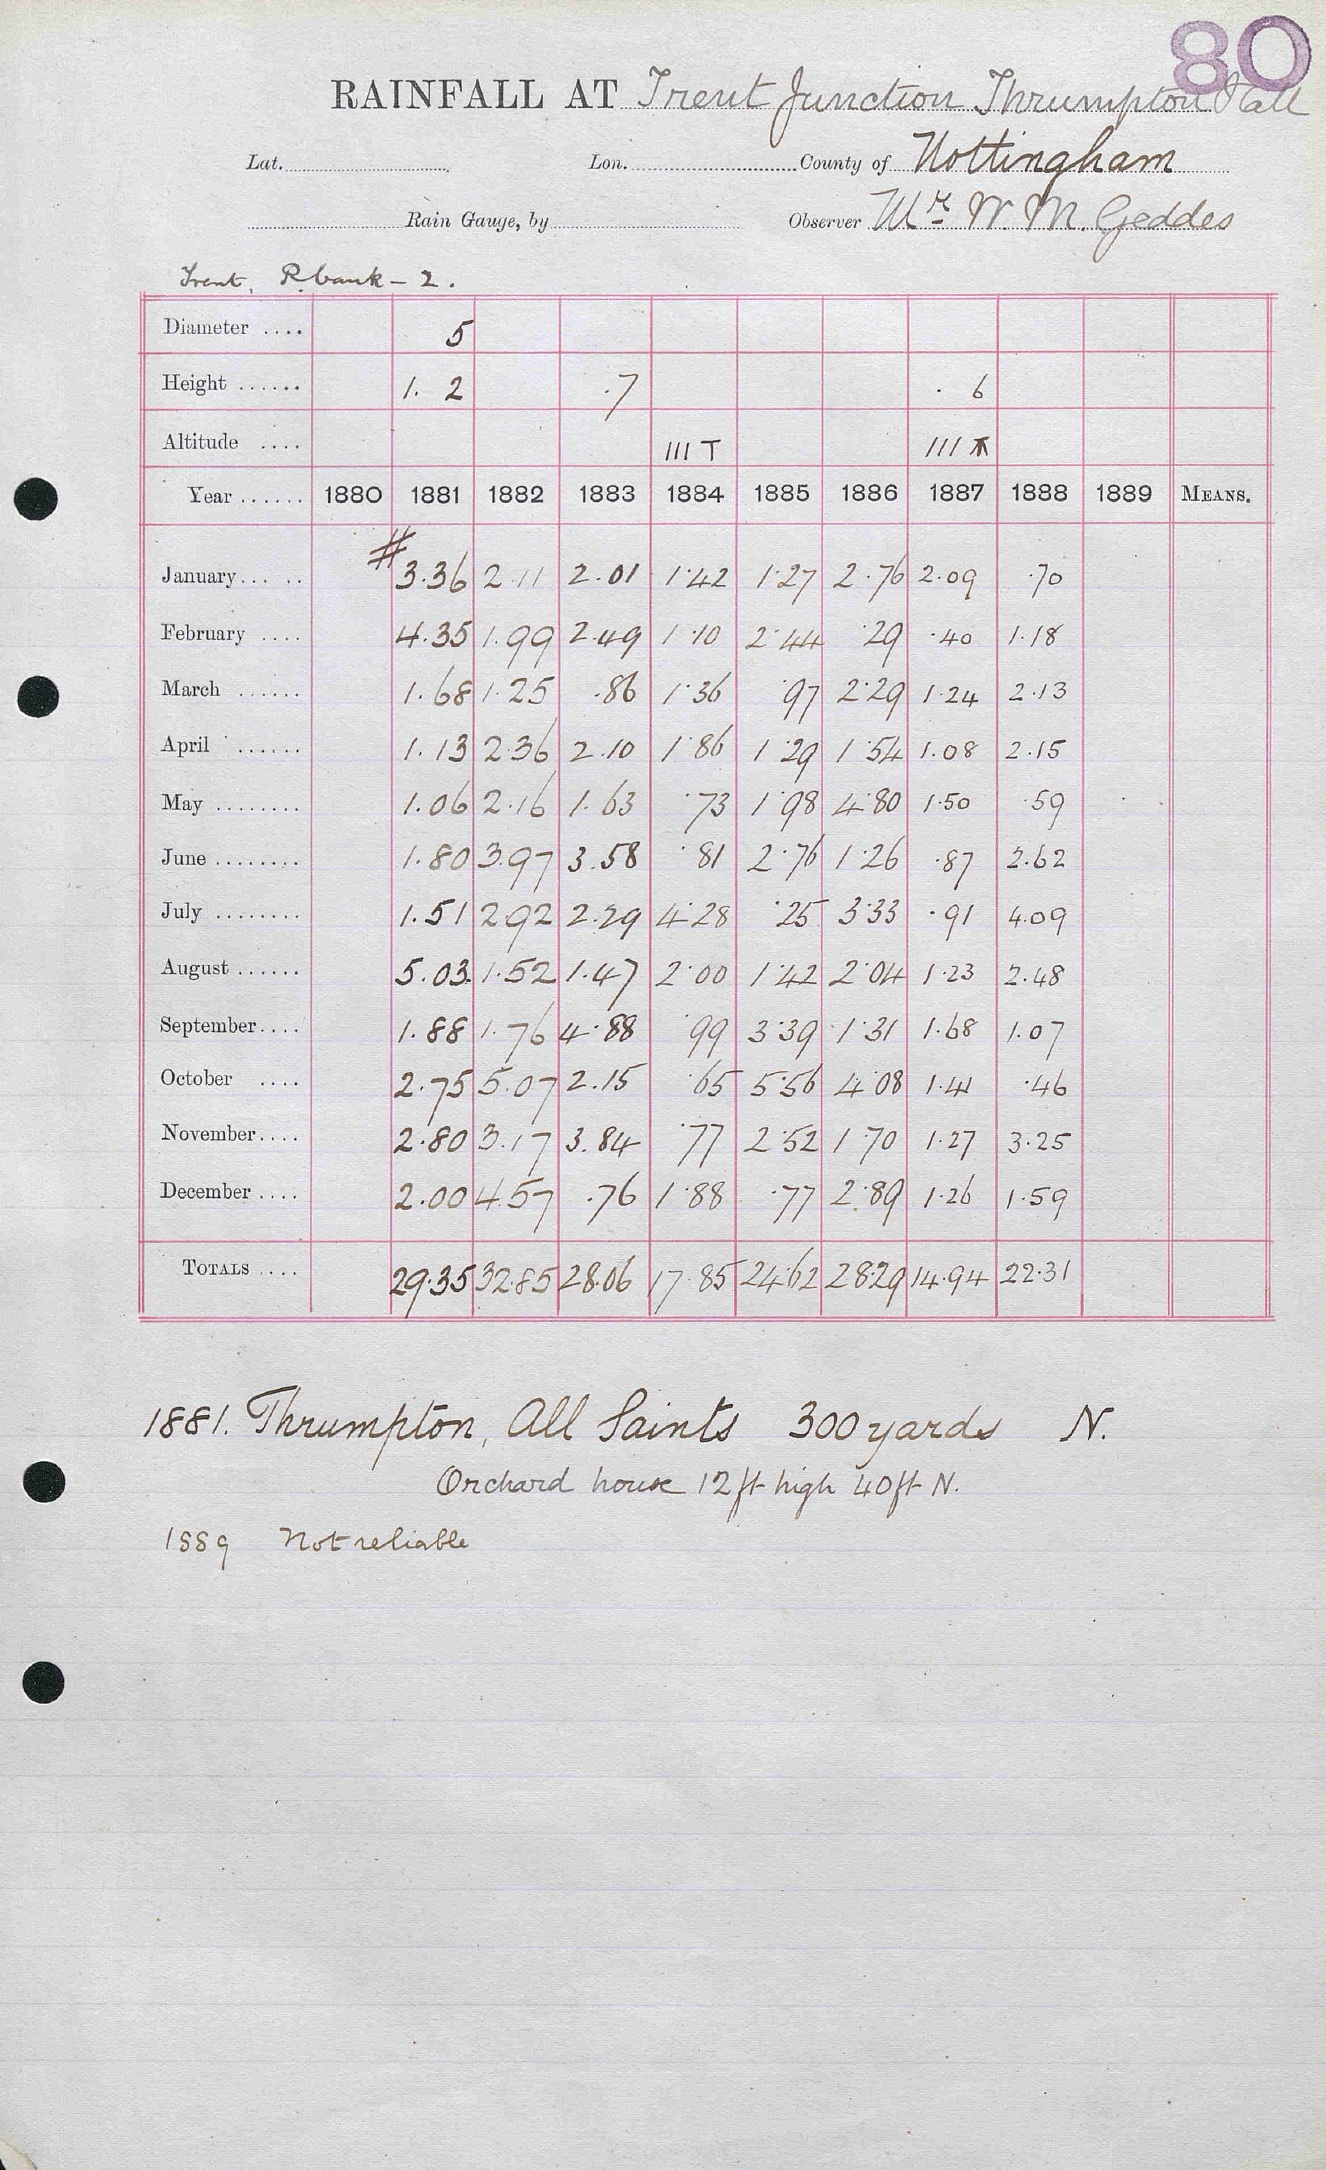 80
RAINFALL AT Trent Junction Thrumpton Hall
Lat. Lon. County of Nottingham
Rain Gauge, by Observer Mr. W. M. Geddes
Trent, R. bank - 2.
Diameter .... 5
Height ...... 1. 2 .7 . 6
Altitude .... 111 T 111 T
Year ...... 1880 1881 1882 1883 1884 1885 1886 1887 1888 1889 MEANS.
January... .. # 3.36 2.11 2.01 1.42 1.27 2.76 2.09 .70
February .... 4.35 1.99 2.49 1.10 2.44 .29 .40 1.18
March ...... 1.68 1.25 .86 1.36 .97 2.29 1.24 2.13
April ...... 1.13 2.36 2.10 1.86 1.29 1.54 1.08 2.15
May ........ 1.06 2.16 1.63 .73 1.98 4.80 1.50 .59
June ........ 1.80 3.97 3.58 .81 2.76 1.26 .87 2.62
July ........ 1.51 2.92 2.29 4.28 .25 3.33 .91 4.09
August ...... 5.03 1.52 1.47 2.00 1.42 2.04 1.23 2.48
September.... 1.88 1.76 4.88 .99 3.39 1.31 1.68 1.07
October .... 2.75 5.07 2.15 .65 5.56 4.08 1.41 .46
November.... 2.80 3.17 3.84 .77 2.52 1.70 1.27 3.25
December .... 2.00 4.57 .76 1.88 .77 2.89 1.26 1.59
TOTALS .... 29.35 32.85 28.06 17.85 24.62 28.29 14.94 22.31
1881. Thrumpton, All Saints 300 yards N.
Orchard house 12 ft high 40 ft N.
1889 Not reliable